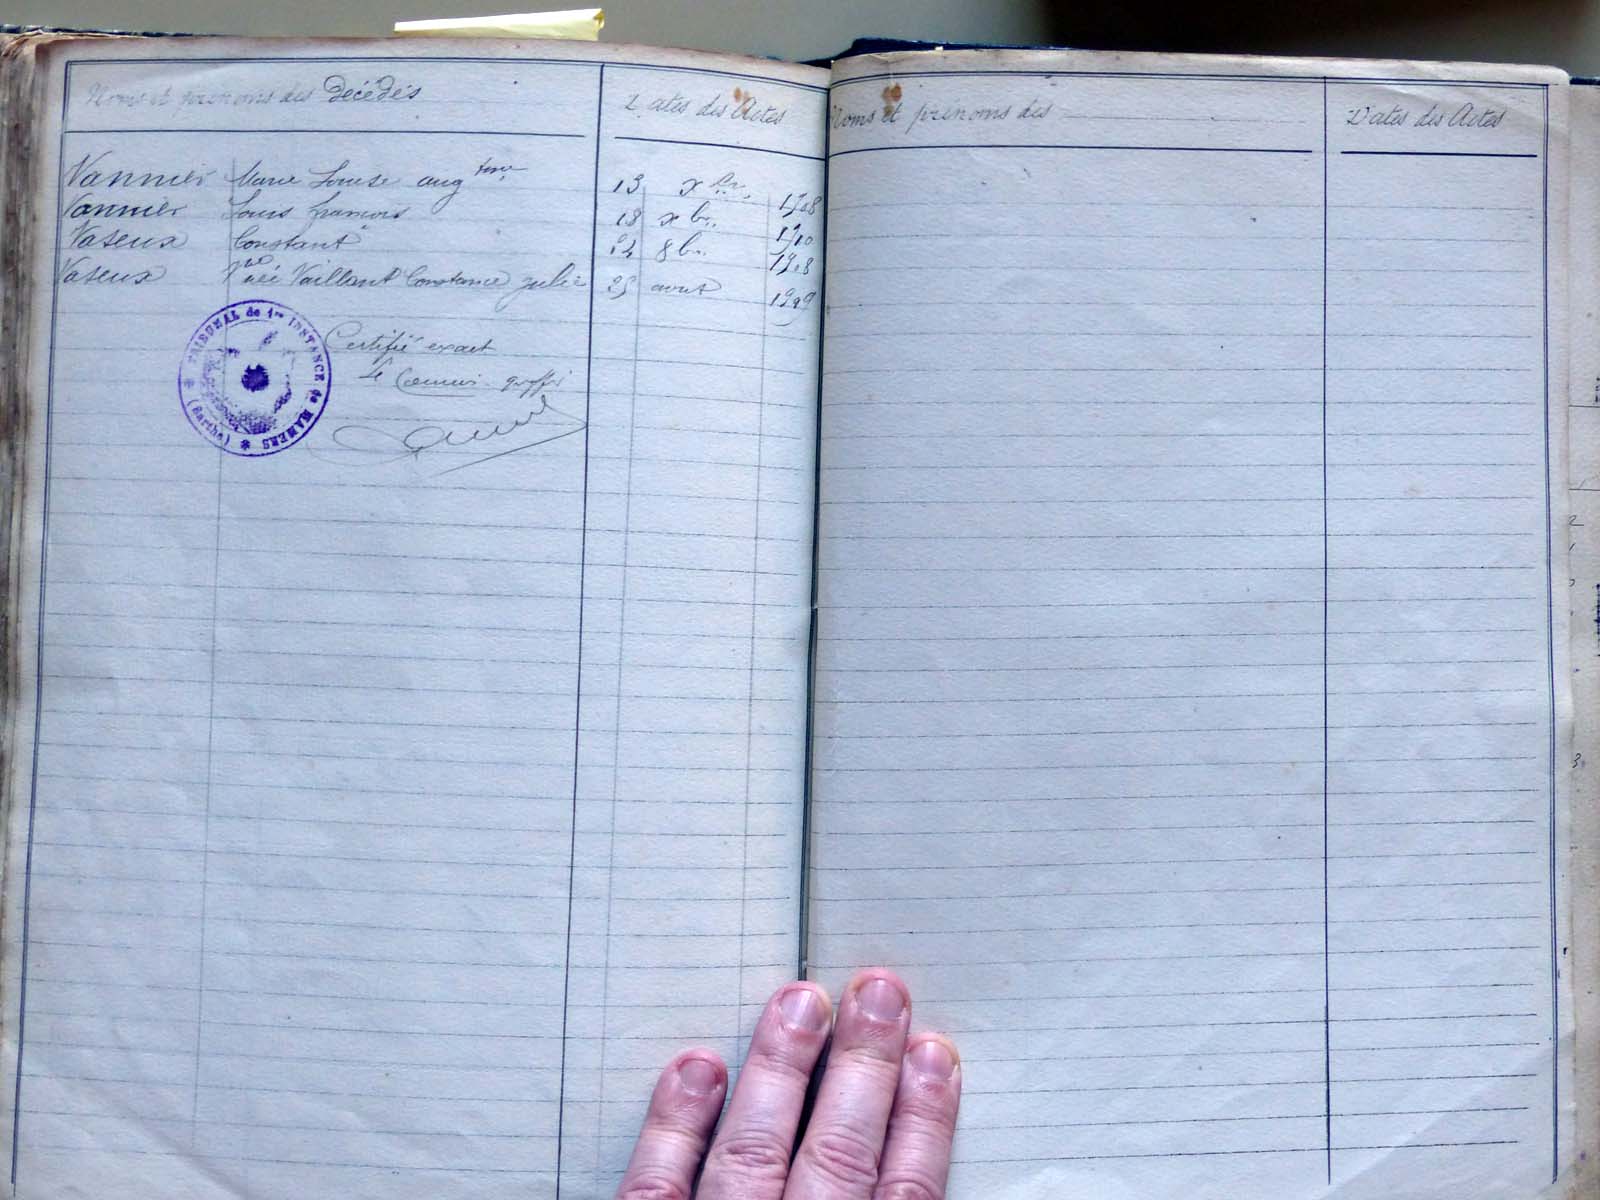 Noms et prénoms des Décédés
Dates des Actes
Vannier Marie Louise aug tine 13 Xbre 1908
Vannier Louis François 18 xbre 1910
Vaseux Constant 8bre 1908
Vaseux Vve née Vaillant Constance Julie 25 aout
Certifié exact
Le Commis greffier
TRIBUNAL de 1re INSTANCE de MAMERS
(Sarthe)
Noms et prénoms des
Dates des Actes